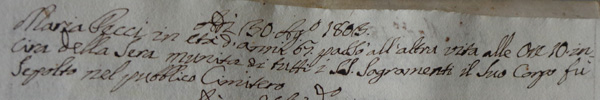 Adi 30 Agto 1863.
Maria Pecci in età d'anni 67. passò all'altra vita alle Ore 10. in
circa della Sera munita di tutti i SS. Sagramenti il Suo Corpo fù
Sepolto nel pubblico Cimitero